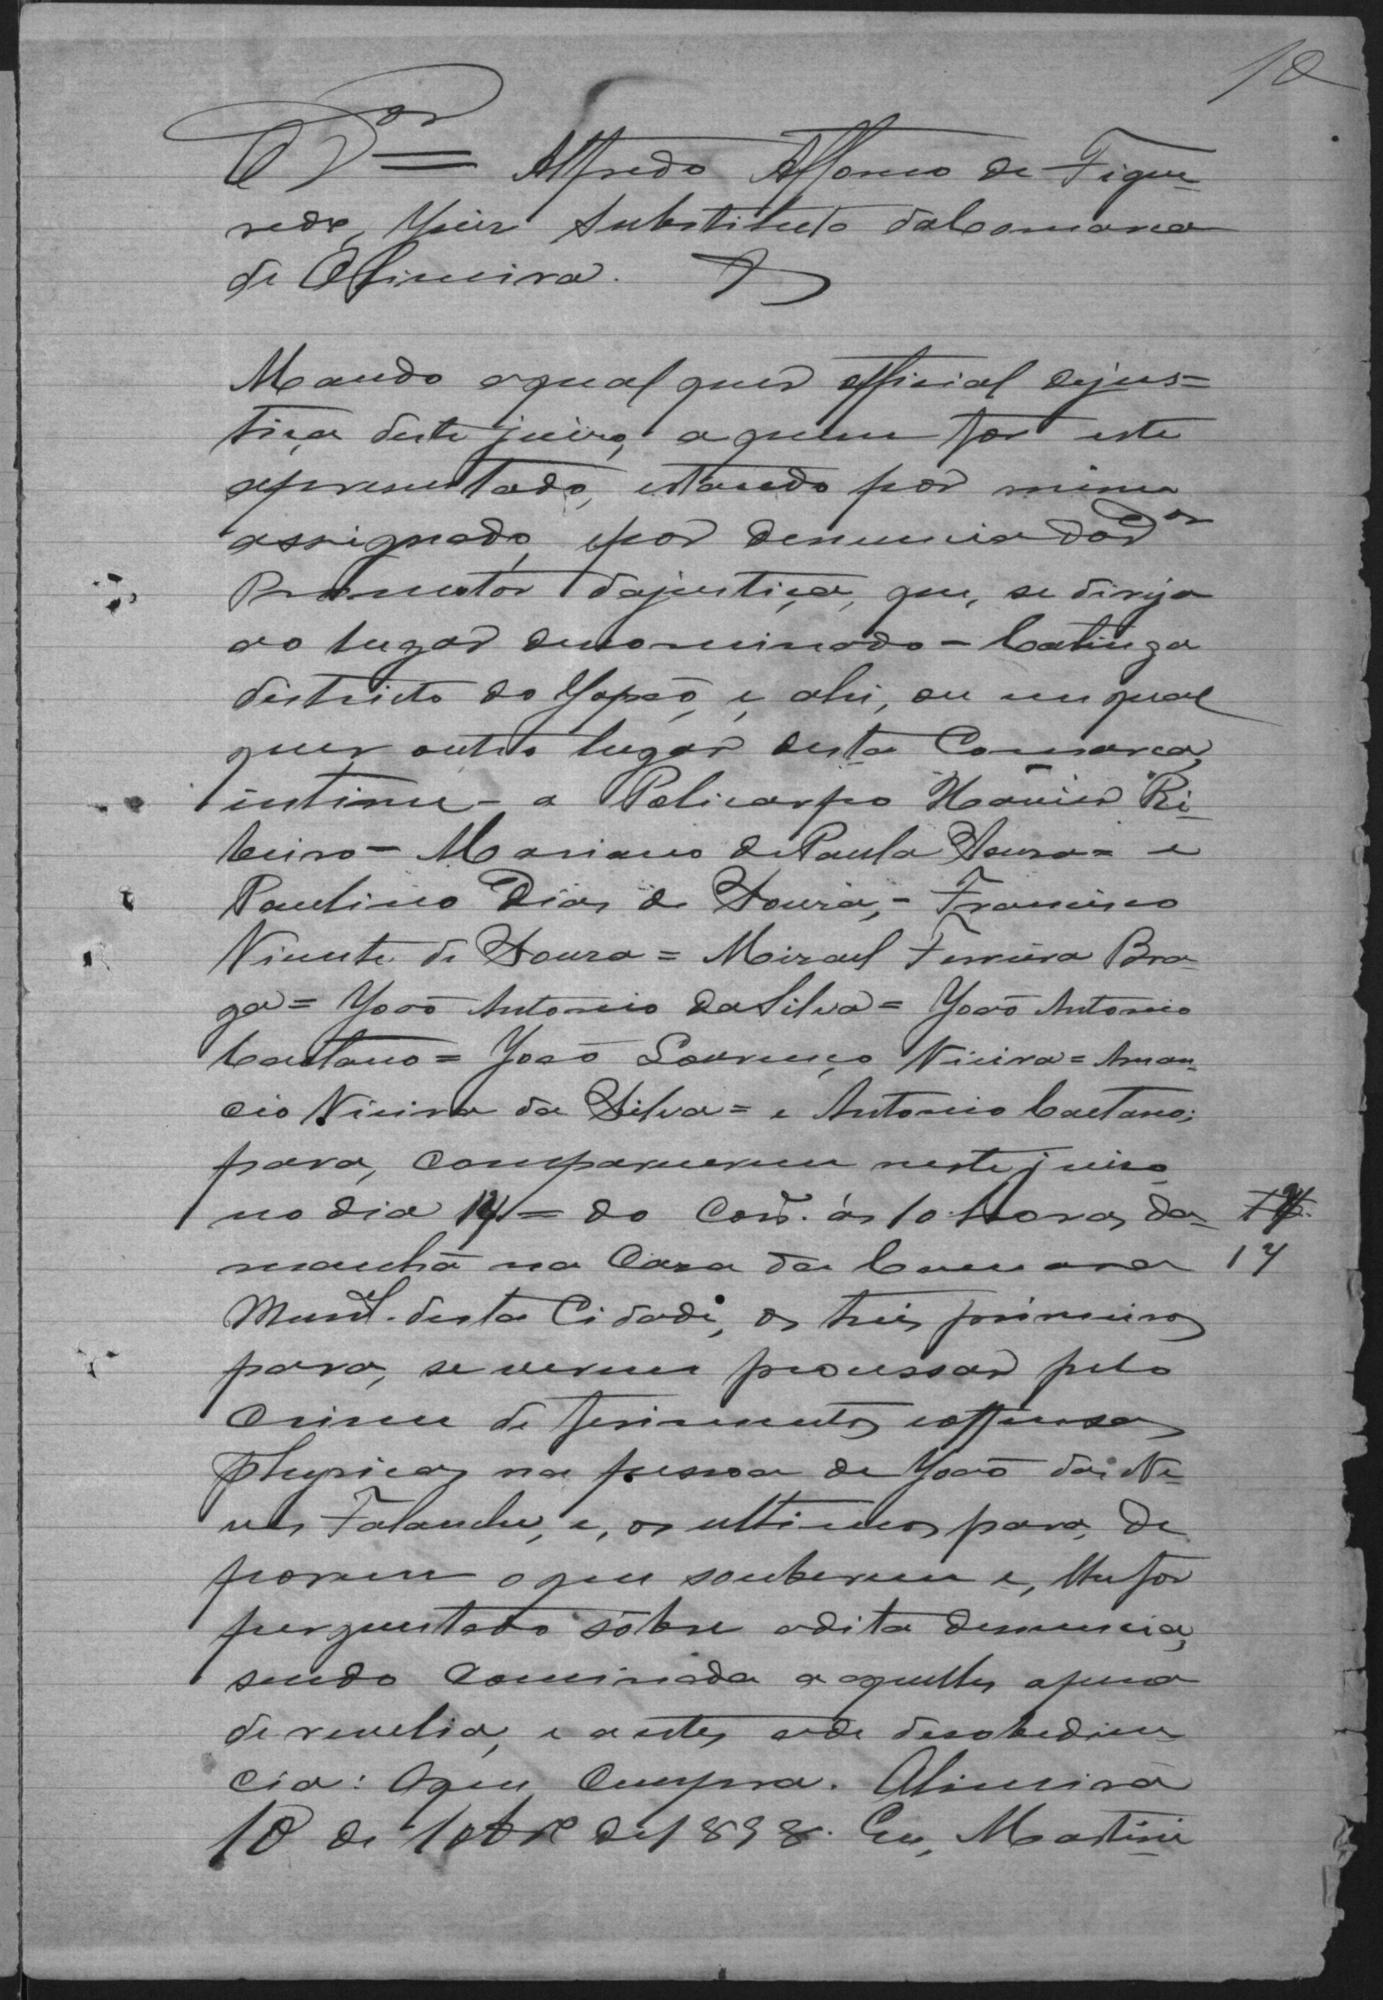 10
O Dor Alfredo Affonso de Figue
redo, Juiz Substituto da Comarca
de Oliveira.
Mando a qual quer official de jus=
tiça deste juizo, a quem for este
apresentado, estando por mim
assignado, e por denuncia do Dor
Promotor da justiça, que, se dirija
ao lugar denominado - Catinga
districto do Japão, e ahi, ou em qual
quer outro lugar desta Comarca,
intime - a Policarpo Xavier Ri-
beiro - Mariano de Paula Souza = e
Paulino Dias de Souza, - Francisco
Vicente de Souza = Mizael Ferreira Bra
ga = João Antonio da Silva = João Antonio
Caetano = João Lourenço Vieira = Aman-
cio Vieira da Silva = e Antonio Caetano;
para, comparecerem neste juizo
no dia 17 = do Corr. ás 10 horas da
17
manhã na Casa da Camara
Munal. desta Cidade, os treis primeiros
para, se verem processar pelo
Crime de ferimentos e offensas
physicas na pessoa de João das Ne-
ves Falanche, e, os ultimos para, de
porem o que souberem e, lhe for
perguntado sobre a dita denuncia,
sendo Cominada a aquelles a pena
de revelia, e a estes a de desobedien
cia: O que Cumpra. Oliveira
10 de 10brº de 1898. Eu, Martini